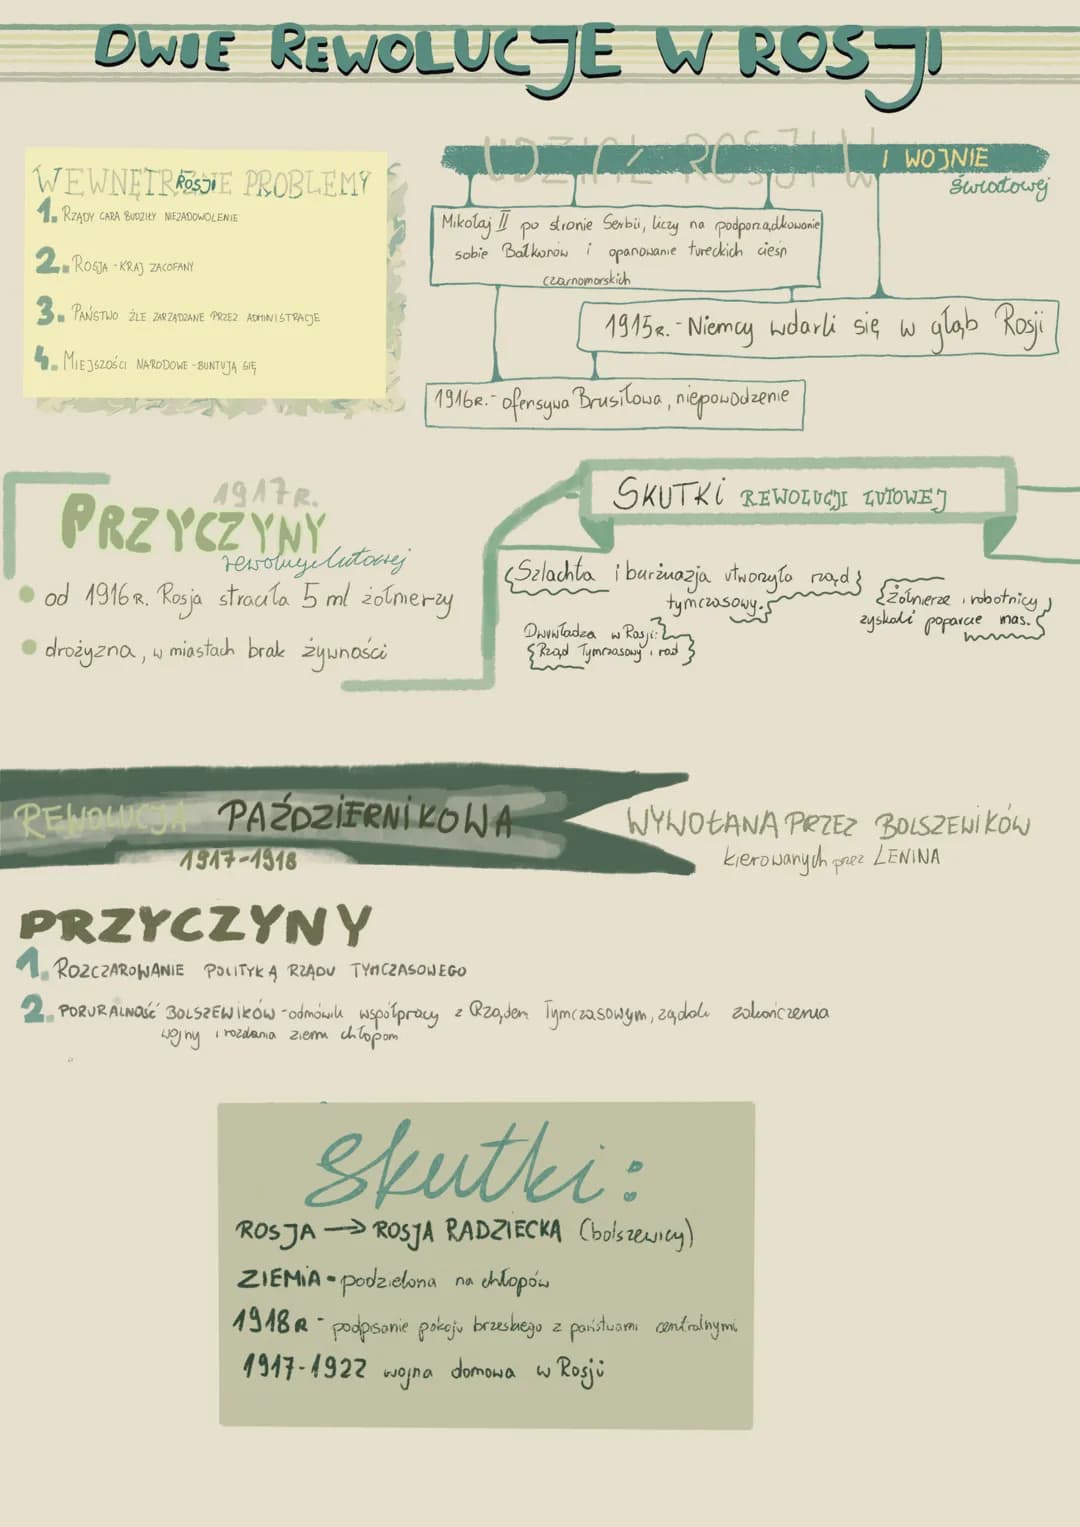 DWIE REWOLUCJE W ROSJI
WEWNĘTRZNE PROBLEMY
ROSJI
1. RZĄDY CARA BUDZIŁY NIEZADOWOLENIE
2. ROSJA - KRAJ ZACOFANY
3. PAŃSTWO ŹLE ZARZĄDZANE PRZEZ ADMINISTRACJE
4. MIEJSZOŚCI NARODOWE - BUNTUJĄ SIĘ
UDZIAŁ ROSJI W I WOJNIE
światowej
Mikołaj II po stronie Serbii, liczy na podporządkowanie
sobie Bałkanów i opanowanie tureckich cieśn
czarnomorskich
1915R. - Niemcy wdarli się w głąb Rosji
1916R. - ofensywa Brusiłowa, niepowodzenie
1917R.
PRZYCZYNY
rewolucji lutowej
od 1916R. Rosja straciła 5 ml żołnierzy
drożyzna, w miastach brak żywności
SKUTKI REWOLUCJI LUTOWEJ
Szlachta i burżuazja utworzyła rząd
tymczasowy.
Żołnierze i robotnicy
zyskali poparcie mas.
Dwuwładza w Rosji:
Rząd Tymczasowy i rad
REWOLUCJA PAŹDZIERNIKOWA
1917-1918
WYWOŁANA PRZEZ BOLSZEWIKÓW
kierowanych przez LENINA
PRZYCZYNY
1. ROZCZAROWANIE POLITYKĄ RZĄDU TYMCZASOWEGO
2. PORURALNOŚĆ BOLSZEWIKÓW - odmówili współpracy z Rządem Tymczasowym, żądali zakończenia
wojny i rozdania ziemi chłopom
Skutki:
ROSJA → ROSJA RADZIECKA (bolszewicy)
ZIEMIA - podzielona na chłopów
1918R - podpisanie pokoju brzeskiego z państwami centralnymi
1917-1922 wojna domowa w Rosji